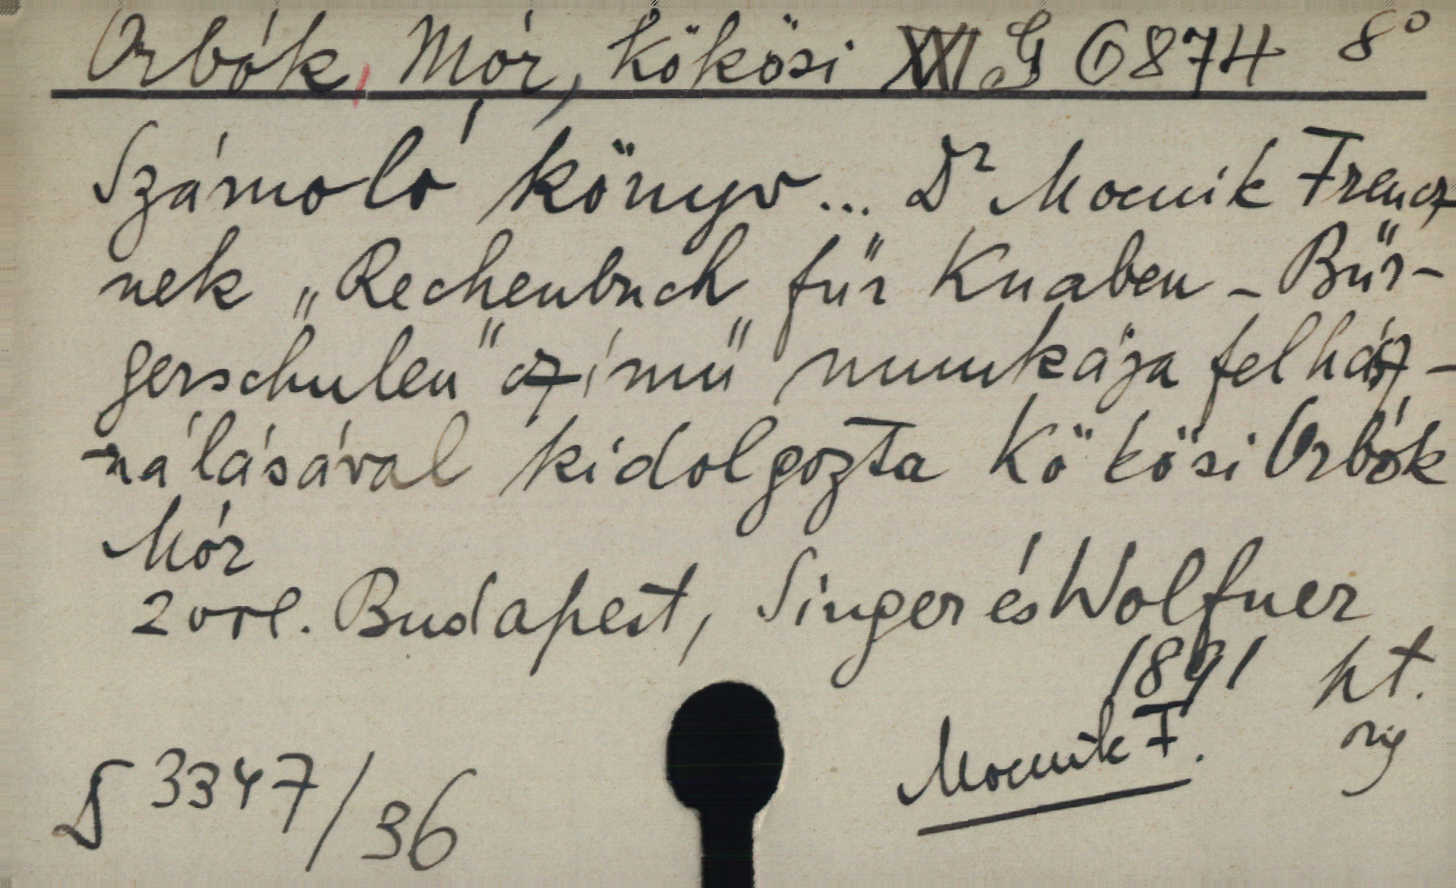 Orbók, Mór, Kökösi XXI G 6874 8°
Számoló könyv... Dr Mocnik Frencz
nek „Rechenbuch für Knaben-Bür-
gerschulen" czímű munkája felhász-
nálásával kidolgozta Kökösi Orbók
Mór
2 vol. Budapest, Singer és Wolfner
1891 kt.
Mocnik F. orig
S 3347/36